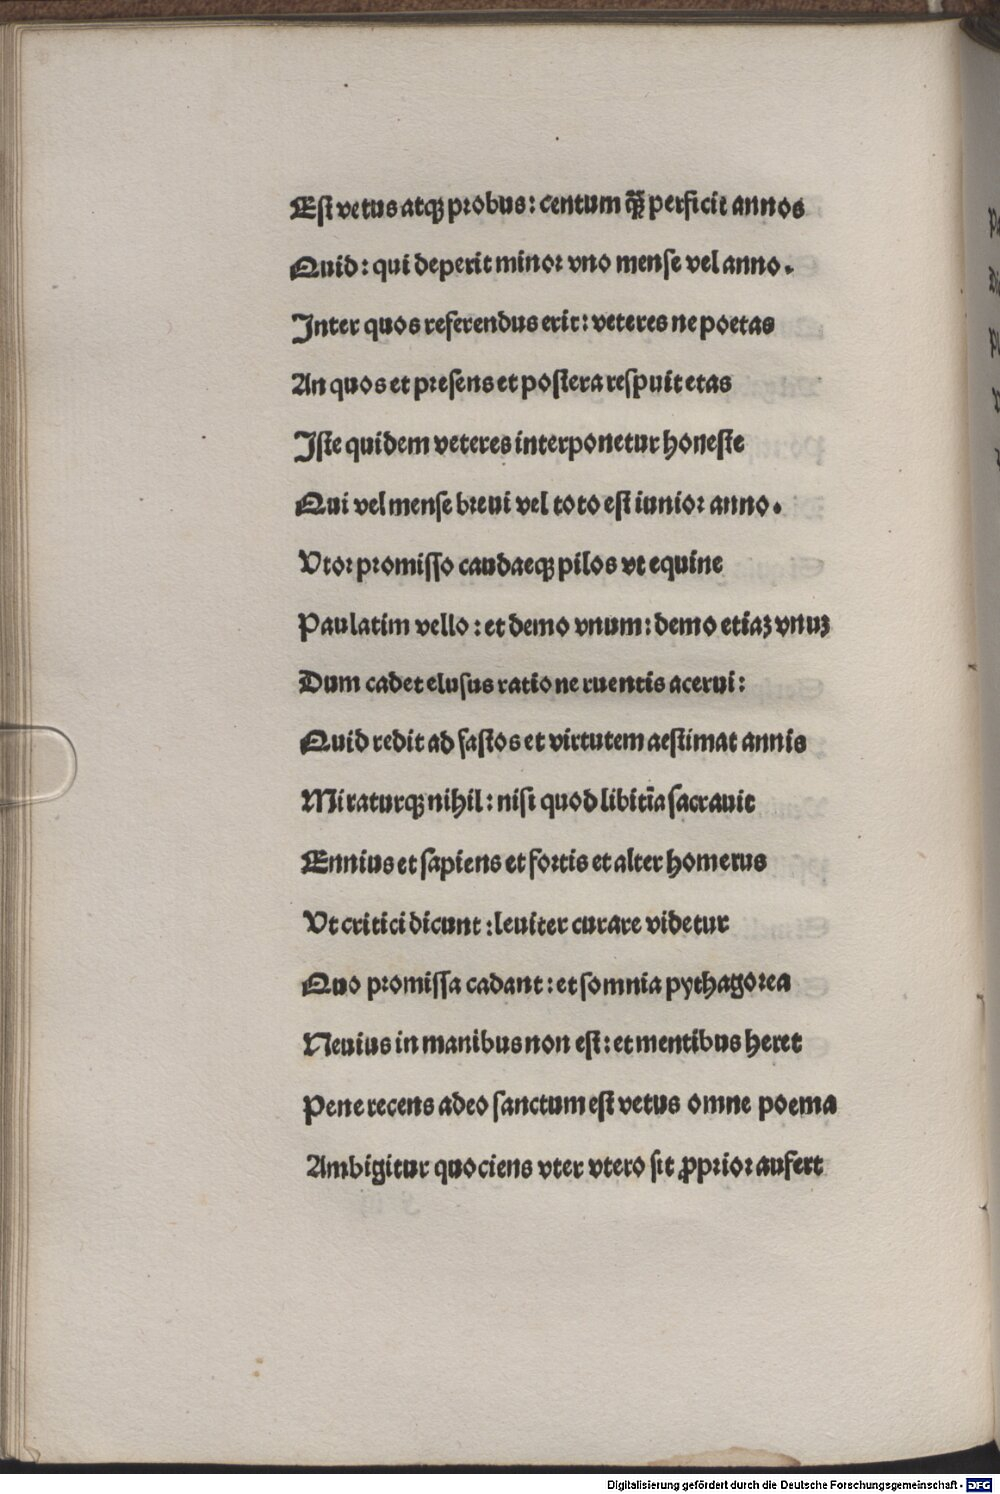 Est vetus atqꝫ probus: centum qͥ perficit annos
Quid: qui deperit minor vno mense vel anno.
Inter quos referendus erit: veteres ne poetas
An quos et presens et postera respuit etas
Iste quidem veteres interponetur honeste
Qui vel mense breui vel toto est iunior anno.
Vtor promisso caudaeqꝫ pilos vt equine
Paulatim vello: et demo vnum: demo etiaꝫ vnuꝫ
Dum cadet elusus ratione ruentis acerui:
Quid redit ad fastos et virtutem aestimat annis
Miraturqꝫ nihil: nisi quod libitīa sacrauit
Ennius et sapiens et fortis et alter homerus
Vt critici dicunt: leuiter curare videtur
Quo promissa cadant: et somnia pythagorea
Neuius in manibus non est: et mentibus heret
Pene recens adeo sanctum est vetus omne poema
Ambigitur quociens vter vtero sit ꝓprior aufert
Digitalisierung gefördert durch die Deutsche Forschungsgemeinschaft - DFG